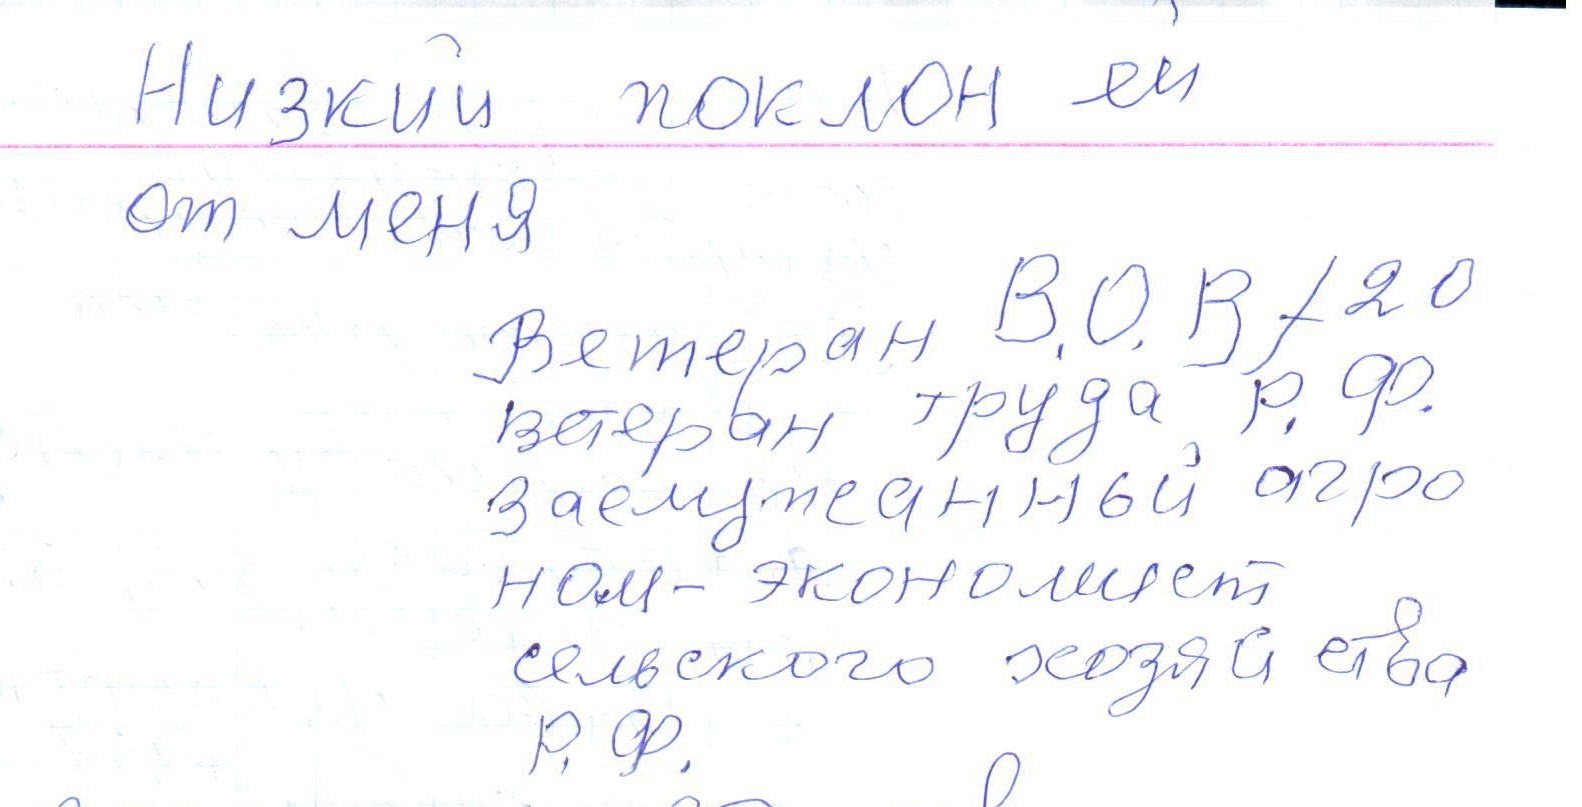 Низкий поклон ей
от меня
Ветеран В.О.В /20
ветеран труда Р.Ф.
Заслуженный агро
ном-экономист
сельского хозяйства
Р.Ф.